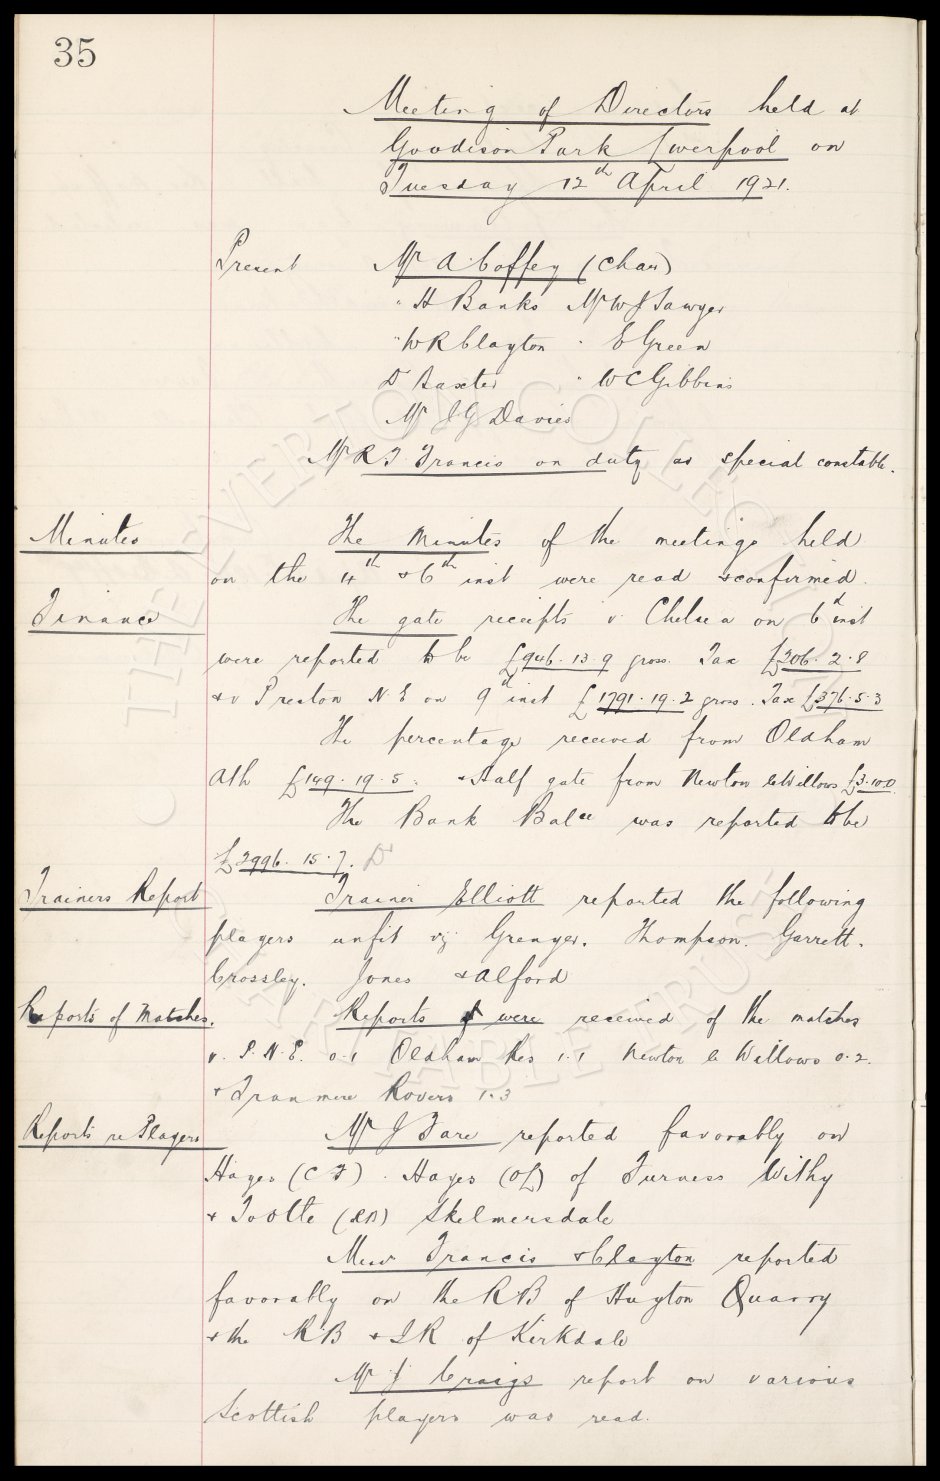 35
Meeting of Directors held at
Goodison Park Liverpool on
Tuesday 12th April 1921.
Present Mr A. Coffey (Chair)
" H Banks Mr W J Sawyer
" W R Clayton " E Green
Dr Baxter " W C Gibbins
Mr J G Davies
Mr R T Francis on duty as special constable.
Minutes The Minutes of the meetings held
on the 4th & 6th inst were read & confirmed.
Finance The gate receipts v Chelsea on 6d inst
were reported to be £946.13.9 gross. Tax £206.2.8
& v Preston N.E on 9d inst £1791.19.2 gross. Tax £376.5.3
The percentage received from Oldham
Ath £149.19.5. & Half gate from Newton le Willows £3.10.0.
The Bank Balce was reported to be
£2996.15.7. Dr
Trainers Report Trainer Elliott reported the following
players unfit viz Grenyer. Thompson. Garrett.
Crossley. Jones & Alford
Reports of Matches. Reports were received of the matches
v. P.N.E. 0.1 Oldham Res 1.1 Newton le Willows 0.2.
& Tranmere Rovers 1.3
Reports re Players Mr J Fare reported favorably on
Hayes (CF). Hayes (OL) of Furness Withy
& Tootle (RB) Skelmersdale
Messrs Francis & Clayton reported
favorably on the RB of Huyton Quarry
& the RB & IR of Kirkdale
Mr J Craigs report on various
Scottish players was read.
THE EVERTON COLLECTION
CHARITABLE TRUST